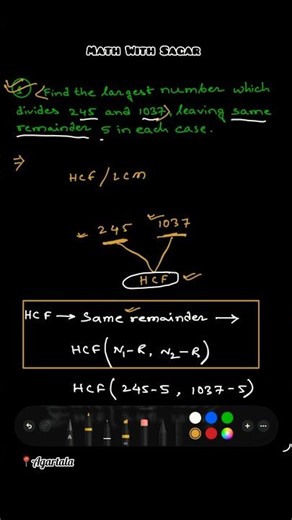 Math With Sagar
Find the largest number which
divides 245 and 1037, leaving same
remainder 5 in each case.
⇒
HCF/LCM
245 1037
HCF
HCF → Same remainder →
HCF(N₁-R, N₂-R)
HCF(245-5, 1037-5)
📍Agartala